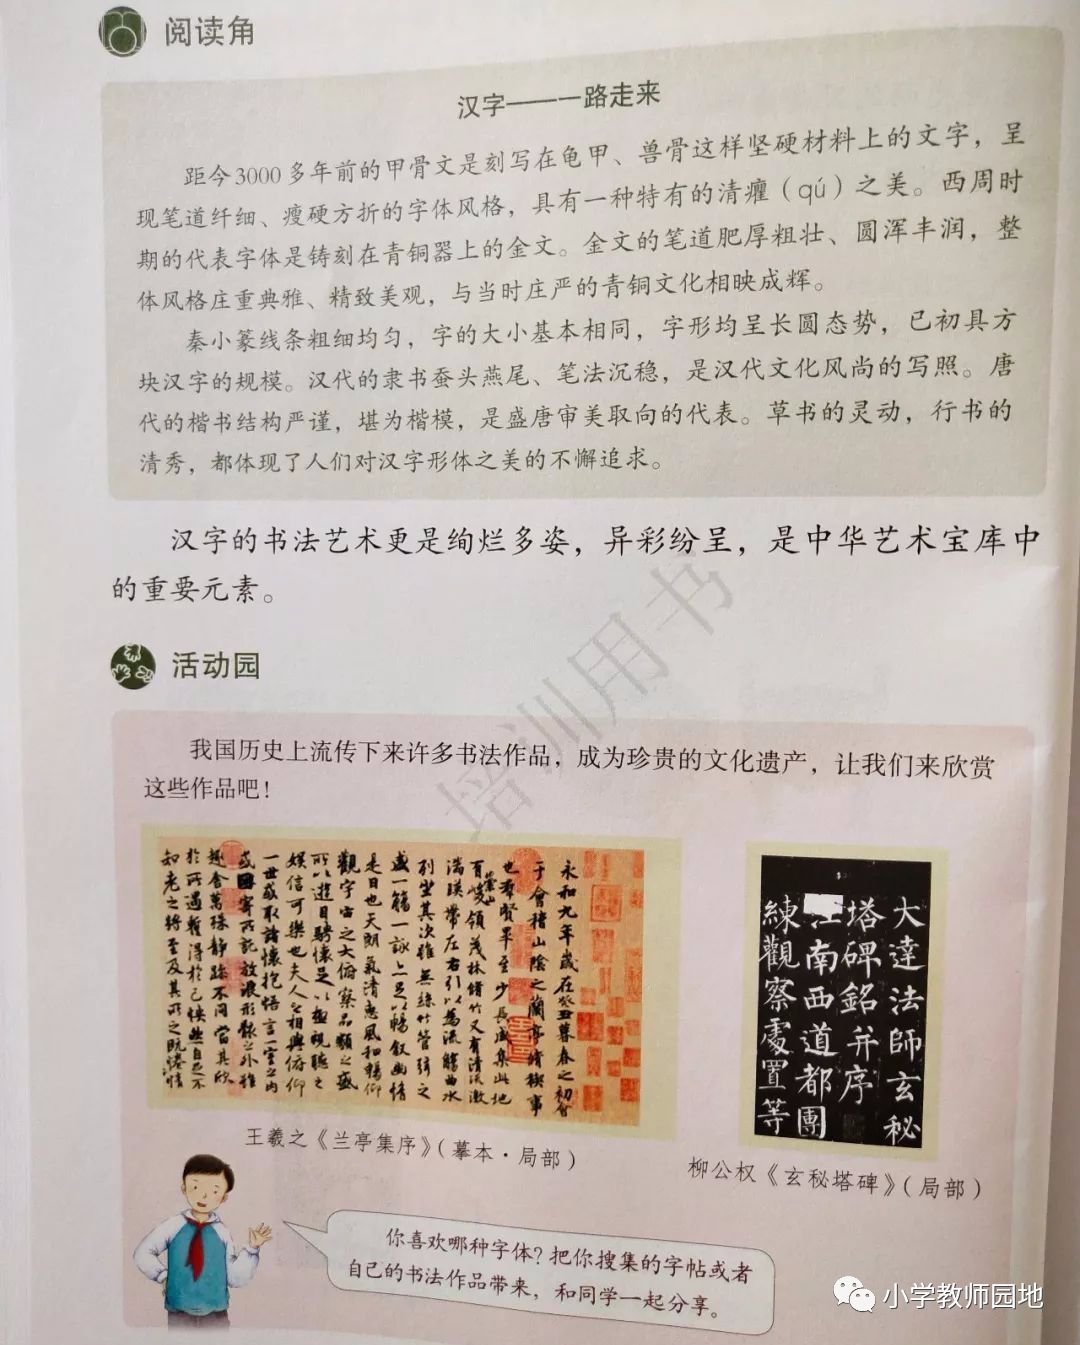 阅读角
汉字——一路走来
距今3000多年前的甲骨文是刻写在龟甲、兽骨这样坚硬材料上的文字，呈
现笔道纤细、瘦硬方折的字体风格，具有一种特有的清癯（qú）之美。西周时
期的代表字体是铸刻在青铜器上的金文。金文的笔道肥厚粗壮、圆浑丰润，整
体风格庄重典雅、精致美观，与当时庄严的青铜文化相映成辉。
秦小篆线条粗细均匀，字的大小基本相同，字形均呈长圆态势，已初具方
块汉字的规模。汉代的隶书蚕头燕尾、笔法沉稳，是汉代文化风尚的写照。唐
代的楷书结构严谨，堪为楷模，是盛唐审美取向的代表。草书的灵动，行书的
清秀，都体现了人们对汉字形体之美的不懈追求。
汉字的书法艺术更是绚烂多姿，异彩纷呈，是中华艺术宝库中
的重要元素。
活动园
我国历史上流传下来许多书法作品，成为珍贵的文化遗产，让我们来欣赏
这些作品吧！
永和九年歲在癸丑暮春之初會
于會稽山陰之蘭亭脩禊事
也羣賢畢至少長咸集此地
有崇山峻領茂林脩竹又有清流激
湍暎帶左右引以為流觴曲水
列坐其次雖無絲竹管弦之
盛一觴一詠亦足以暢叙幽情
是日也天朗氣清惠風和暢仰
觀宇宙之大俯察品類之盛
所以遊目騁懷足以極視聽之
娛信可樂也夫人之相與俯仰
一世或取諸懷抱悟言一室之內
或因寄所託放浪形骸之外雖
趣舍萬殊靜躁不同當其欣
於所遇暫得於己快然自足不
知老之將至及其所之既惓情
大達法師玄秘
塔碑銘并序
江南西道都團
練觀察處置等
王羲之《兰亭集序》（摹本·局部）
柳公权《玄秘塔碑》（局部）
你喜欢哪种字体？把你搜集的字帖或者
自己的书法作品带来，和同学一起分享。
培训用书
小学教师园地